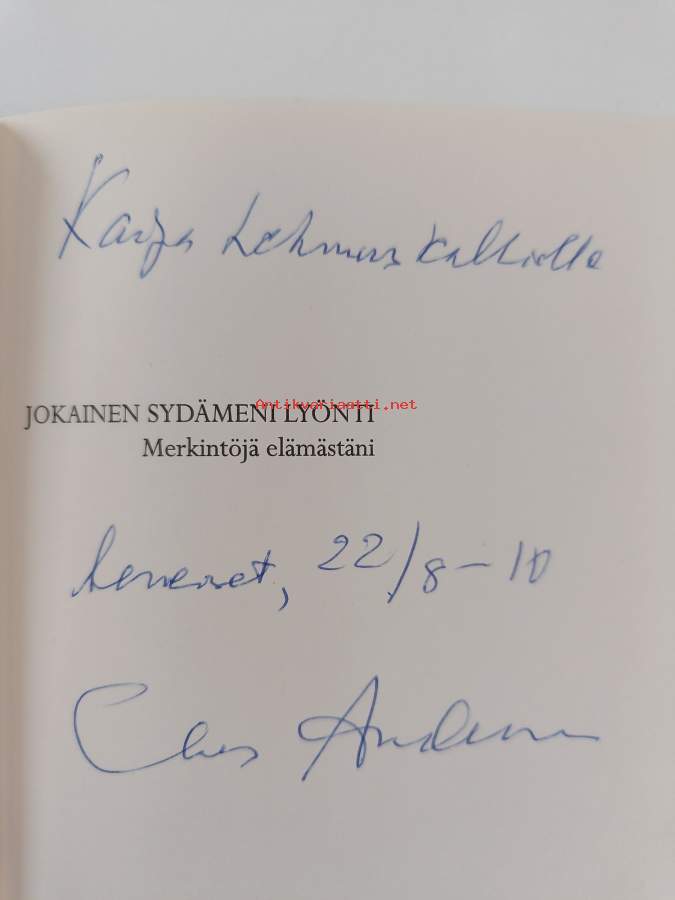 Kaija Lehmuskalliolle
JOKAINEN SYDÄMENI LYÖNTI
Antikvariaatti.net
Merkintöjä elämästäni
22/8-10
Claes Andersson